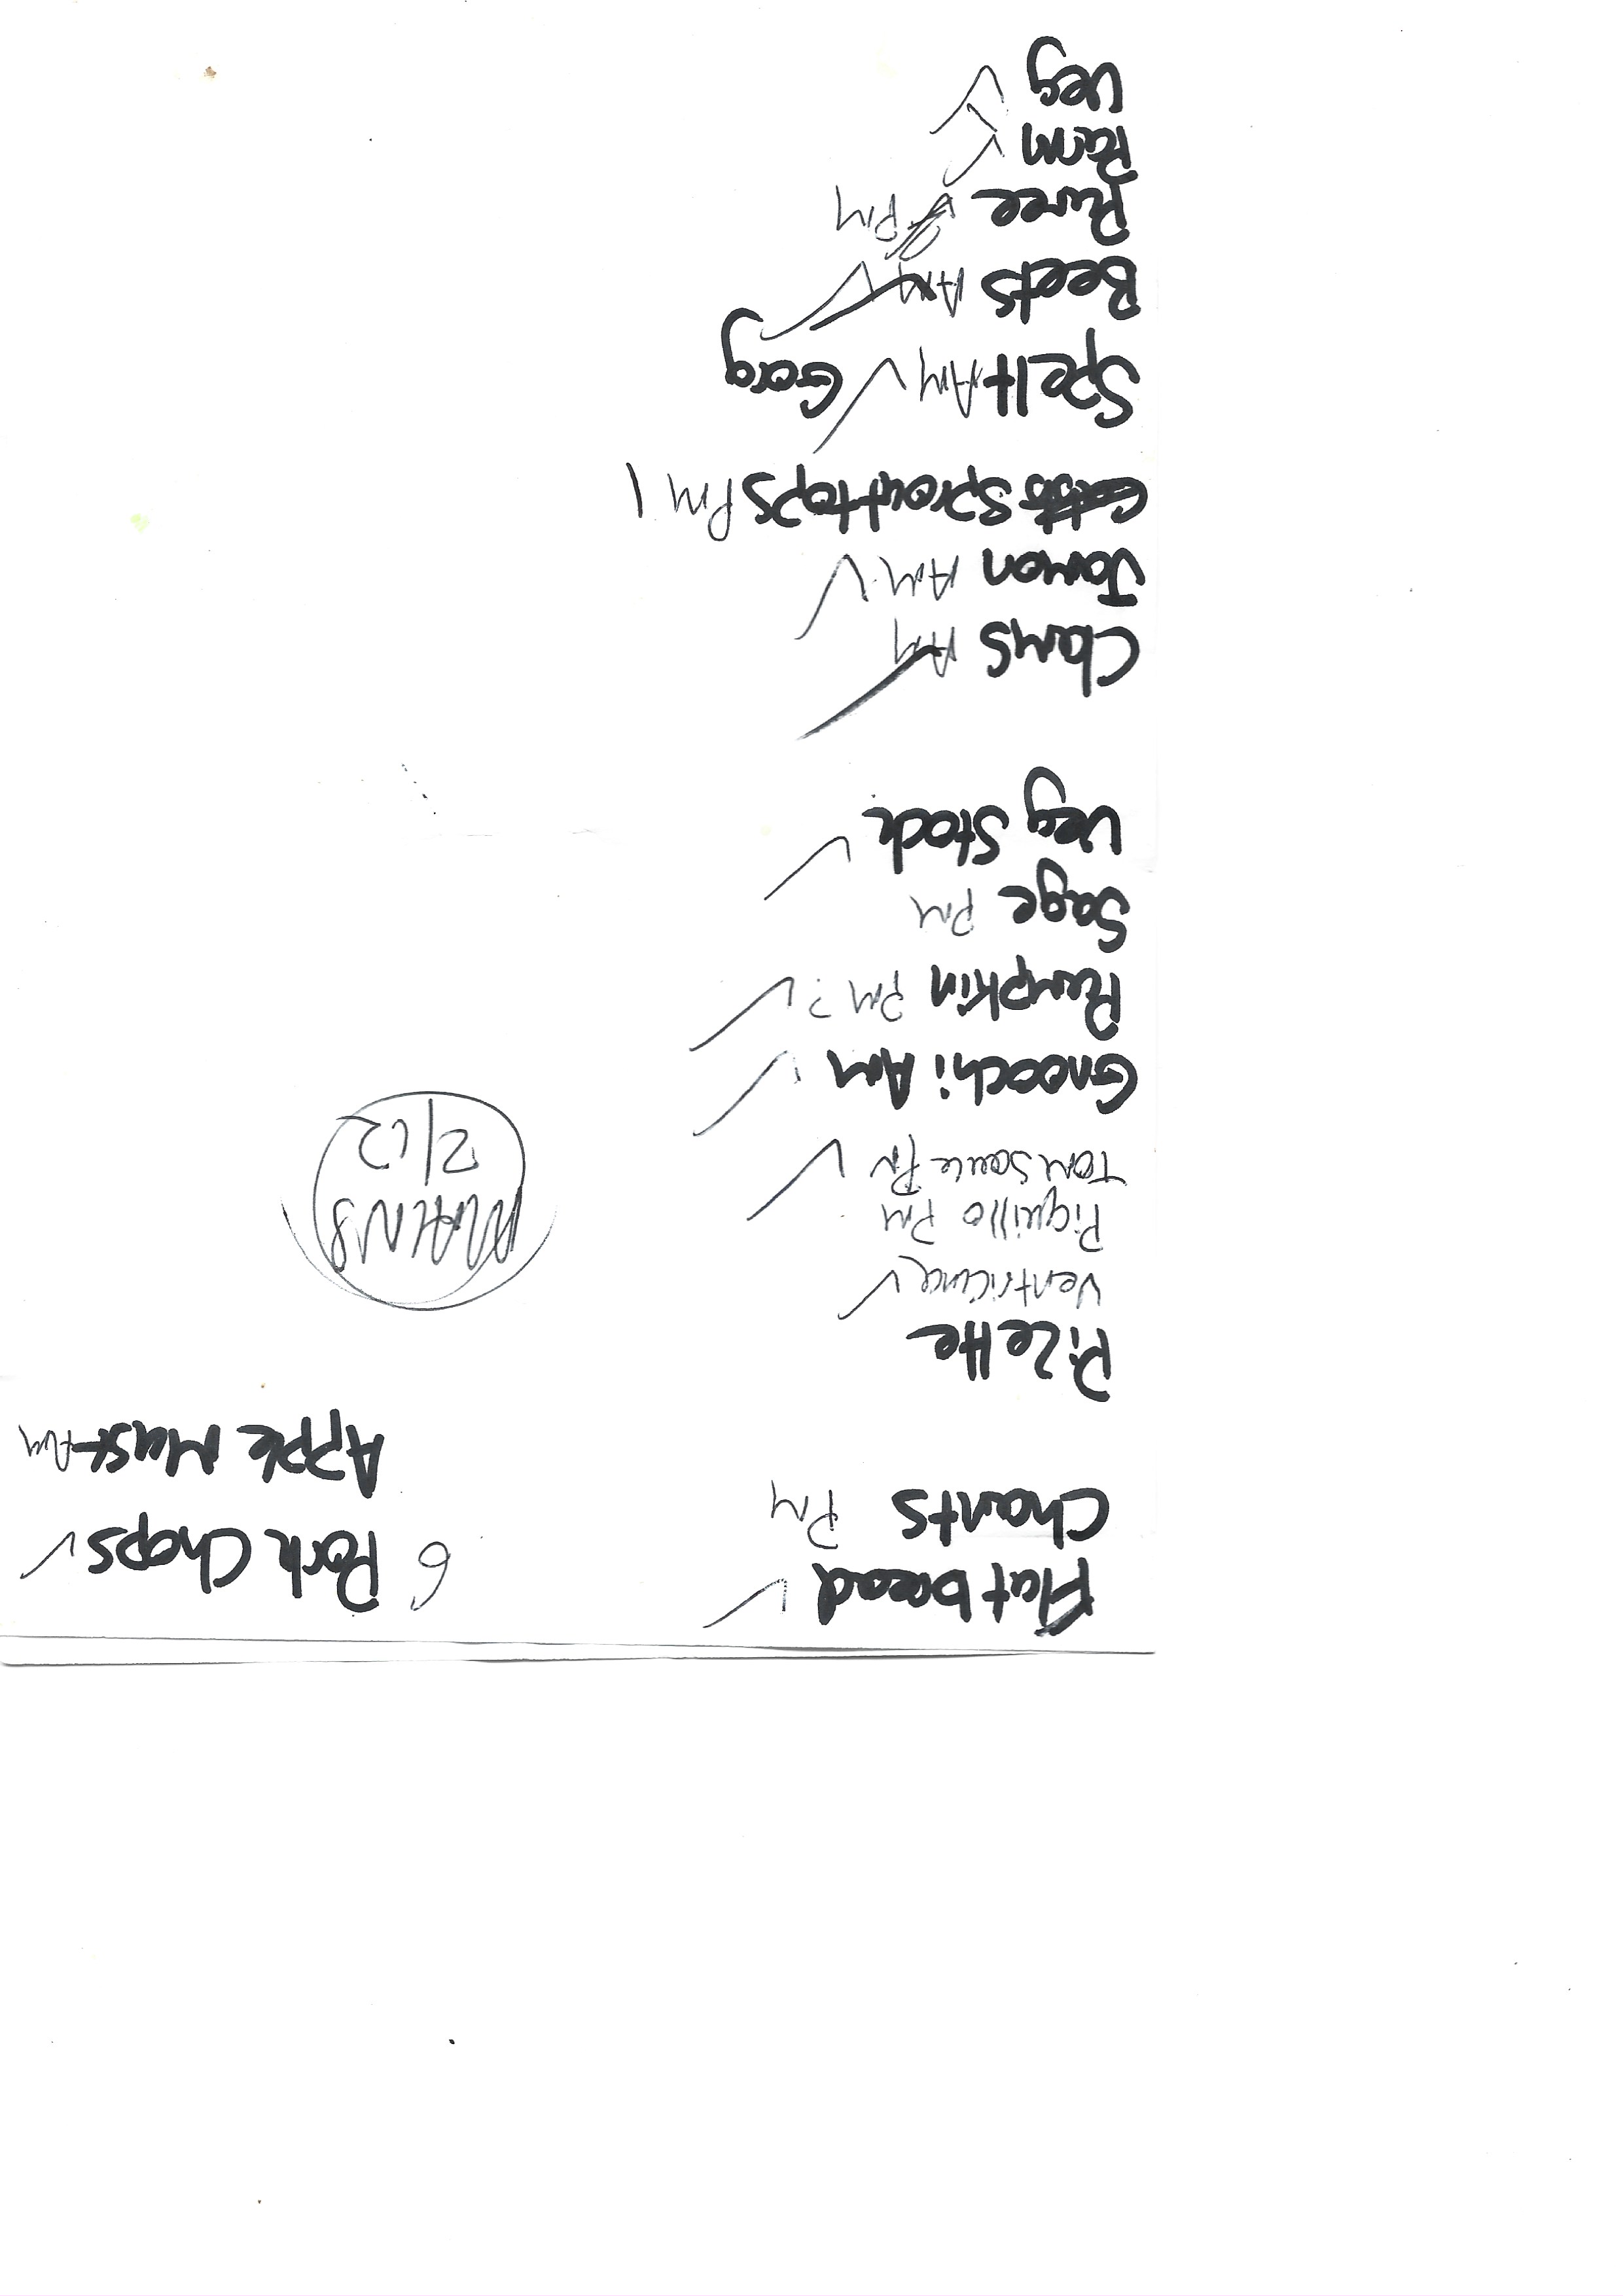 Flat bread ✓
Chants PM
Pizette
Ventricina ✓
Piquillo PM
Tom Sauce PM ✓
Gnocchi AM ✓
Pumpkin PM ? ✓
Sage PM
Veg Stock ✓
Clams AM ✓
Jamon AM ✓
Sprout tops PM 1
Spelt AM ✓ Gorg
Beets AM ✓
Puree PM
Parm ✓
Veg ✓
6 Pork Chops ✓
Apple Must AM
MAINS
2/12